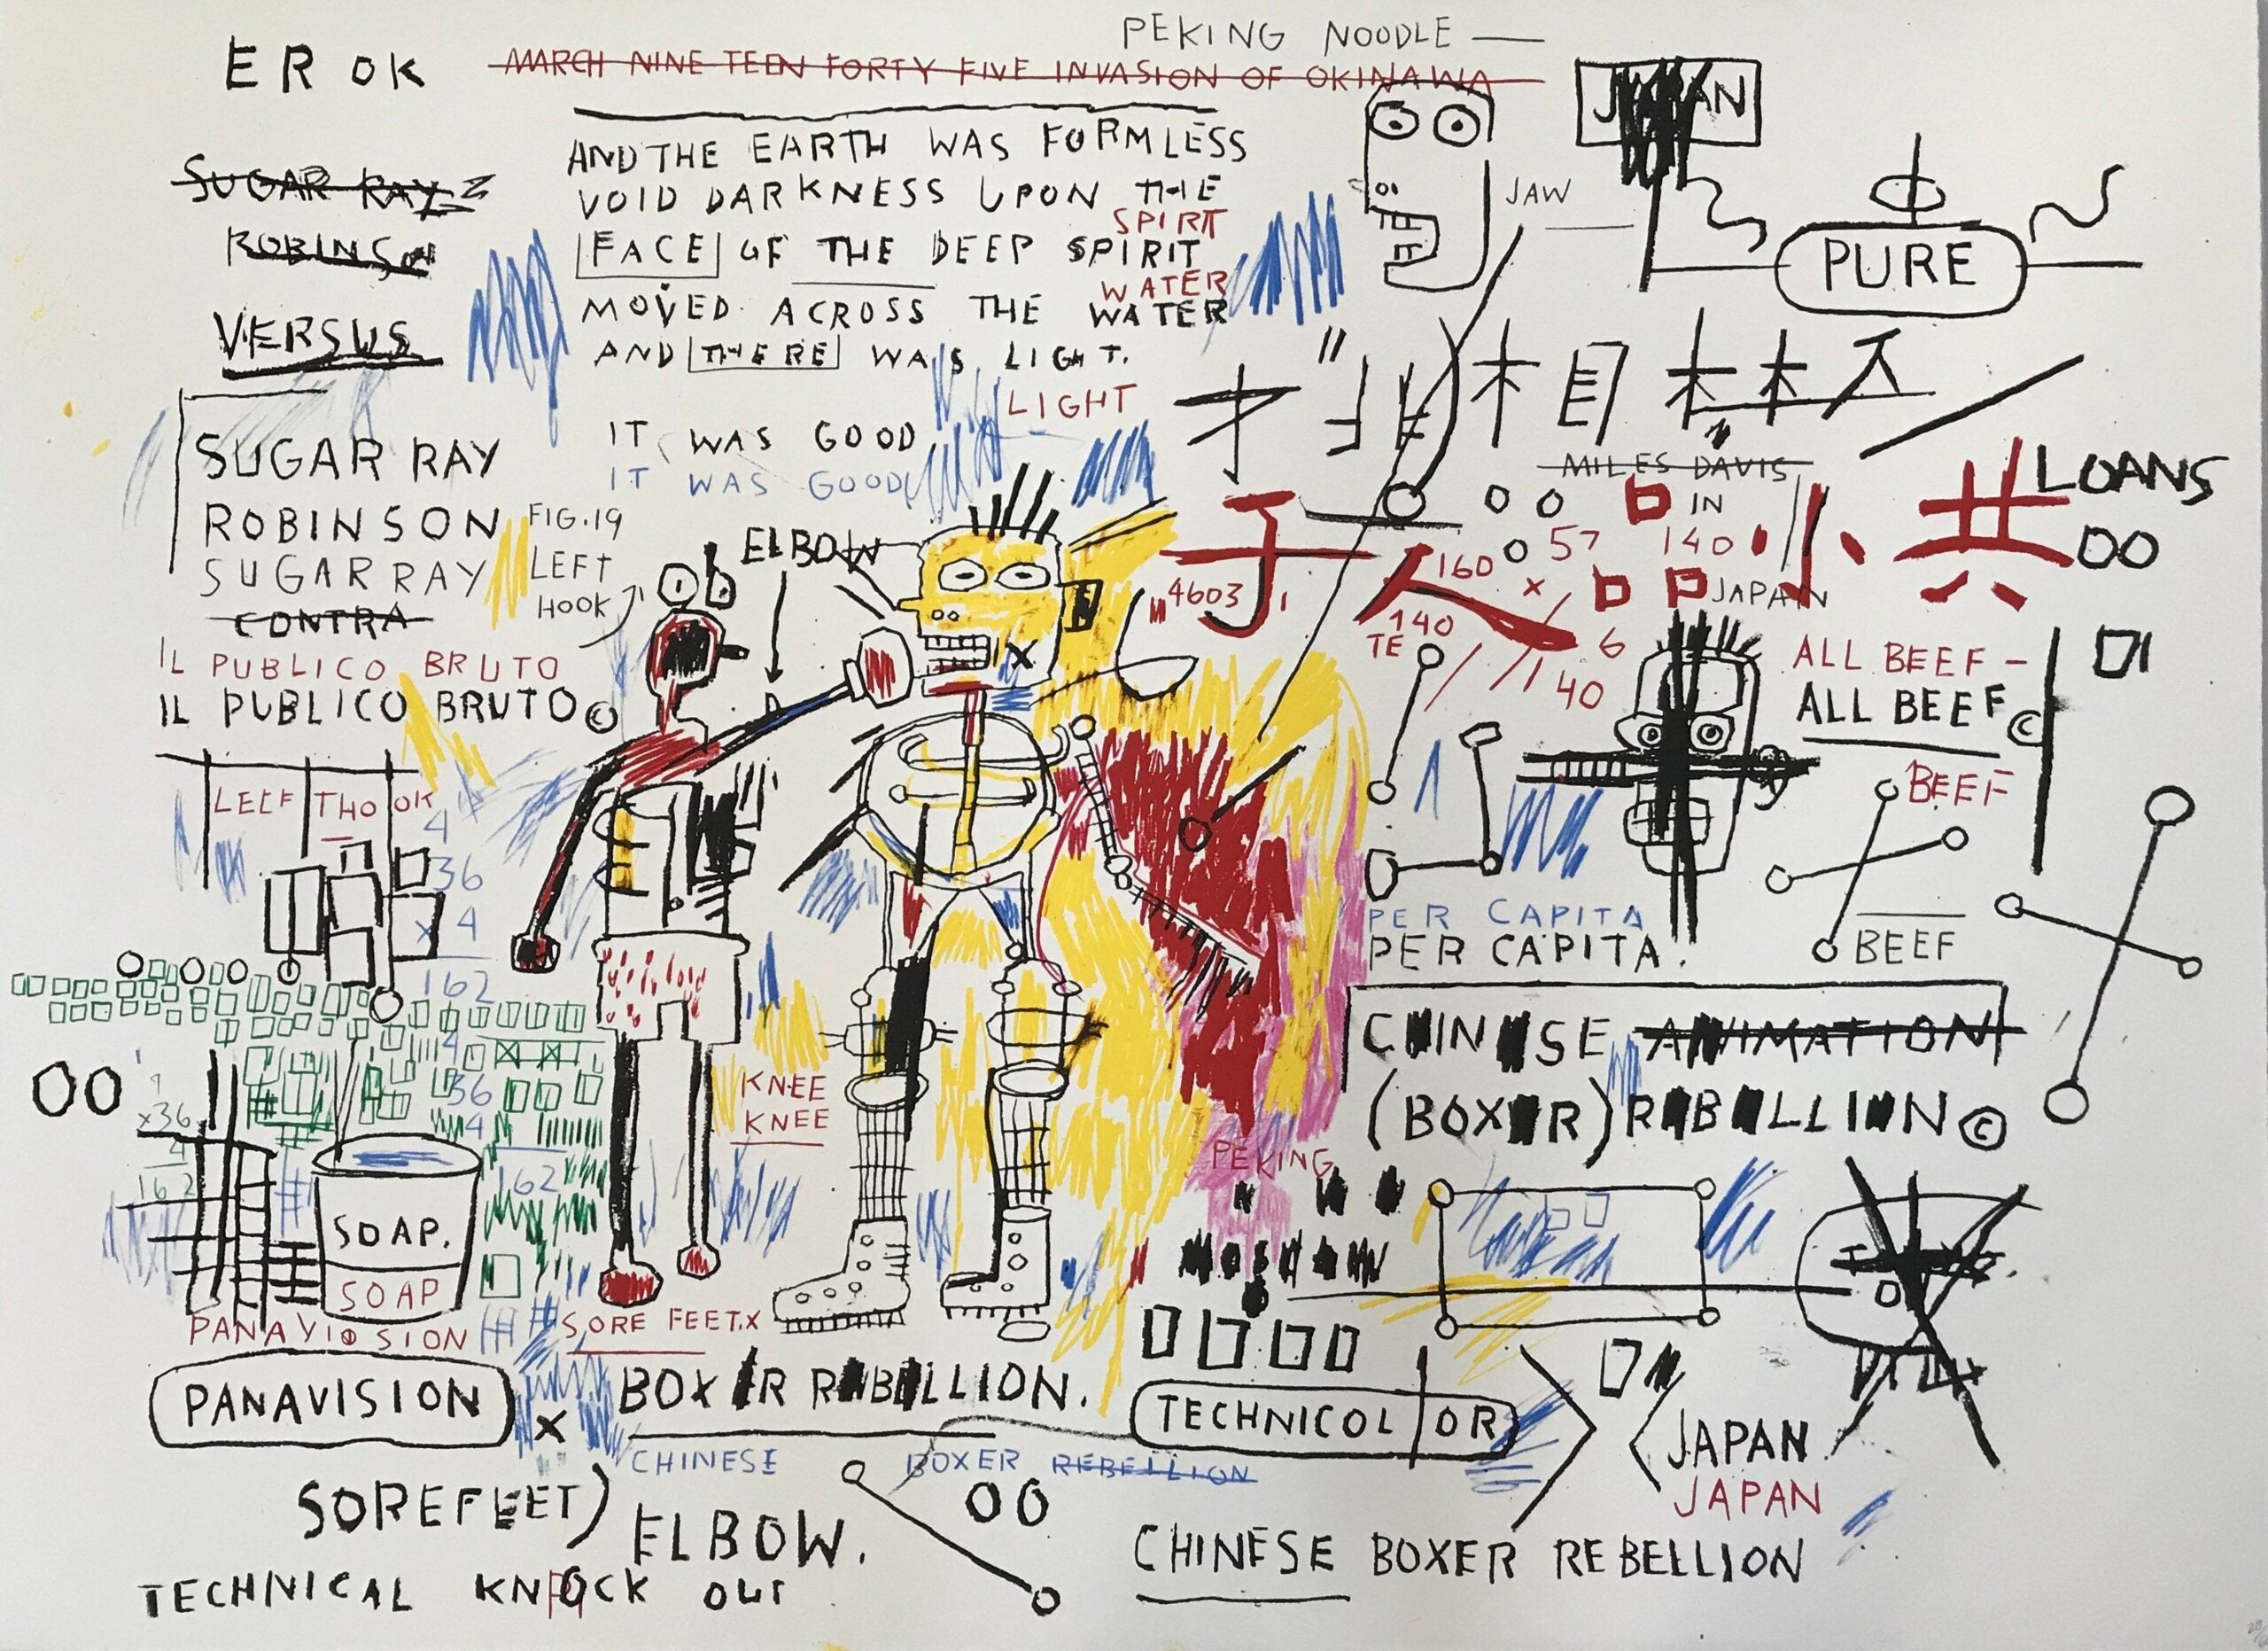 PEKING NOODLE —
ER OK
MARCH NINE TEEN FORTY FIVE INVASION OF OKINAWA
JAPAN
SUGAR RAY
ROBINSON
VERSUS
AND THE EARTH WAS FORMLESS
VOID DARKNESS UPON THE
SPIRIT
FACE OF THE DEEP SPIRIT
WATER
MOVED ACROSS THE WATER
AND THERE WAS LIGHT.
LIGHT
IT WAS GOOD
IT WAS GOOD
JAW
PURE
SUGAR RAY
ROBINSON
SUGAR RAY
CONTRA
IL PUBLICO BRUTO
IL PUBLICO BRUTO©
FIG.19
LEFT
HOOK
ELBOW
MILES DAVIS
IN
LOANS
OO
小 共
子 人
4603
160
57
140
JAPAN
140
TE
6
40
ALL BEEF -
ALL BEEF©
BEEF
BEEF
PER CAPITA
PER CAPITA.
LEEF THO OK
4
36
x 4
162
4
36
4
162
OO
x36
4
162
KNEE
KNEE
SOAP.
SOAP
PANAVISION
PANAVISION
SORE FEET.X
X
BOXER REBELLION.
CHINESE BOXER REBELLION
CHINESE ANIMATION
(BOXER) REBELLION©
PEKING
TECHNICOLOR
JAPAN
JAPAN
SOREFEET)
ELBOW.
OO
TECHNICAL KNOCK OUT
CHINESE BOXER REBELLION